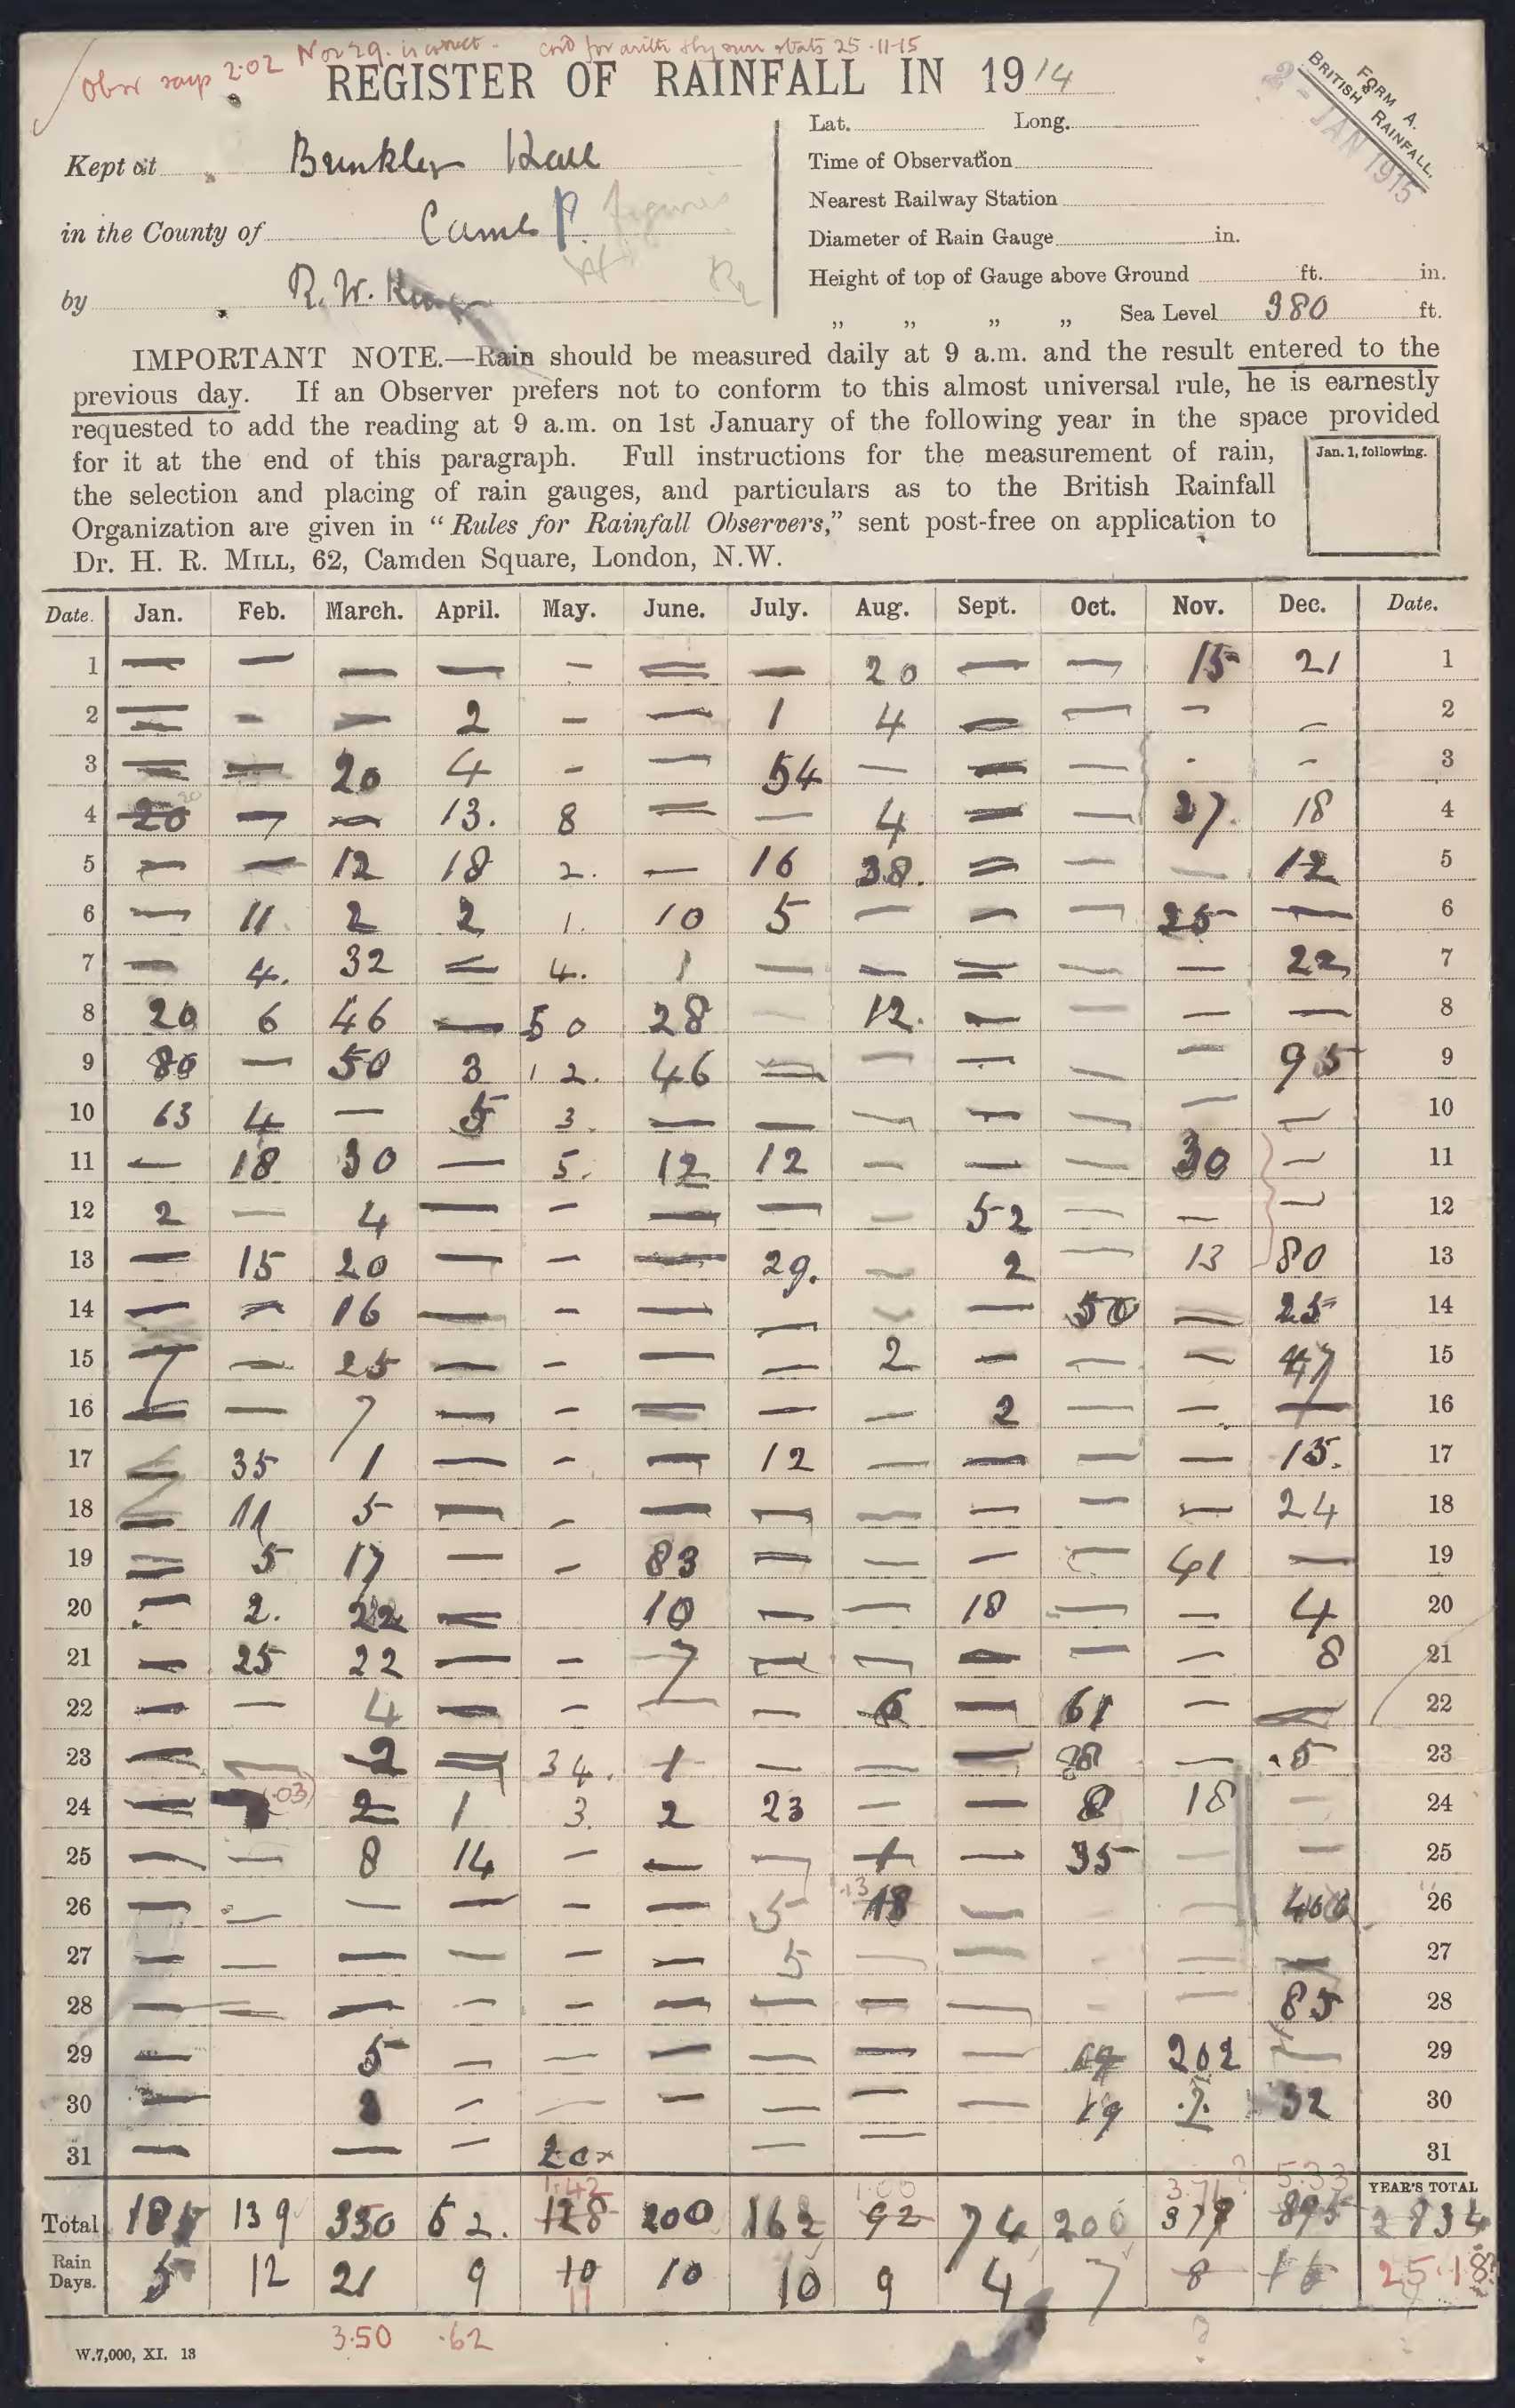 Obsr says 2.02 Nov 29. is correct. cord for arith 25.11.15
REGISTER OF RAINFALL IN 1914
FORM A.
BRITISH RAINFALL.
2 - JAN 1915
Kept at Brinkley Hall
in the County of Cambs P. figures
by R. W. King
Lat. Long.
Time of Observation
Nearest Railway Station
Diameter of Rain Gauge in.
Height of top of Gauge above Ground ft. in.
„ „ „ „ Sea Level 380 ft.
IMPORTANT NOTE.—Rain should be measured daily at 9 a.m. and the result entered to the
previous day. If an Observer prefers not to conform to this almost universal rule, he is earnestly
requested to add the reading at 9 a.m. on 1st January of the following year in the space provided
for it at the end of this paragraph. Full instructions for the measurement of rain,
the selection and placing of rain gauges, and particulars as to the British Rainfall
Organization are given in “Rules for Rainfall Observers,” sent post-free on application to
Dr. H. R. MILL, 62, Camden Square, London, N.W.
Jan. 1, following.
Date. Jan. Feb. March. April. May. June. July. Aug. Sept. Oct. Nov. Dec. Date.
1 — — — — — — — 20 — — 15 21 1
2 — — — 2 — — 1 4 — — — — 2
3 — — 20 4 — — 54 — — — - - 3
4 20 — — 13. 8 — — 4 — — 27. 18 4
5 — — 12 18 2. — 16 38. — — — 12 5
6 — 11 2 2 1. 10 5 — — — 25 — 6
7 — 4. 32 — 4. 1 — — — — — 22 7
8 20 6 46 — 50 28 — 12. — — — — 8
9 80 — 50 3 12. 46 — — — — — 95 9
10 63 4 — 5 3. — — — — — — — 10
11 — 18 30 — 5. 12 12 — — — 30 — 11
12 2 — 4 — — — — — 52 — — — 12
13 — 15 20 — — — 29. — 2 — 13 80 13
14 — — 16 — — — — — — 50 — 25 14
15 — — 25 — — — — 2 — — — 47 15
16 — — 7 — — — — — 2 — — — 16
17 — 35 1 — — — 12 — — — — 15. 17
18 — 11 5 — — — — — — — — 24 18
19 — 5 17 — — 83 — — — — 41 — 19
20 — 2. 22 — 10 — — 18 — — 4 20
21 — 25 22 — — 7 — — — — — 8 21
22 — — 4 — — — — 6 — 61 — — 22
23 — — 2 — 34. 1 — — — 28 — .5 23
24 — (.03) 2 1 3. 2 23 — — 8 18 — 24
25 — — 8 14 — — — 1 — 35 — — 25
26 — — — — — — 5 13 18 — — 26
27 — — — — — — 5 — — - — — 27
28 — — — — — — — — — - — 85 28
29 — 5 — — — — — — 19 202 — 29
30 — 3 — — — — — — 19 .7. 32 30
31 — — — 20 — — 31
1.42 1.00 3.71? 5.33 YEAR'S TOTAL
Total 139 350 62. 128 200 162 92 74 200 378 895 2834
Rain Days. 5 12 21 9 10 10 10 9 4 7 8 16 25.18?
11
3.50 .62
W.7,000, XI. 13